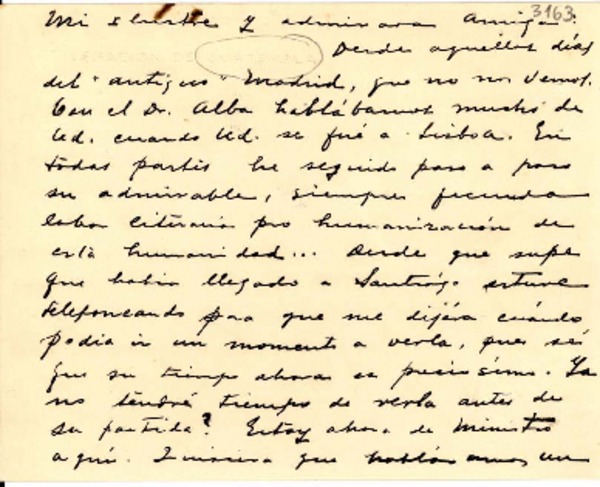 3163
Mi ilustre y admirada Amiga:
Desde aquellos días
del "antiguo" Madrid, que no nos vemos.
Con el Dr. Alba hablábamos mucho de
Ud. cuando Ud. se fué a Lisboa. En
todas partes he seguido paso a paso
su admirable, siempre fecunda
labor literaria pro humanización de
esta humanidad... Desde que supe
que había llegado a Santiago estuve
telefoneando para que me dijéra cuándo
podia ir un momento a verla, pues sé
que su tiempo ahora es preciosísimo. Ya
no tendré tiempo de verla antes de
su partida? Estoy ahora de Ministro
aquí. Quisiera que habláramos un